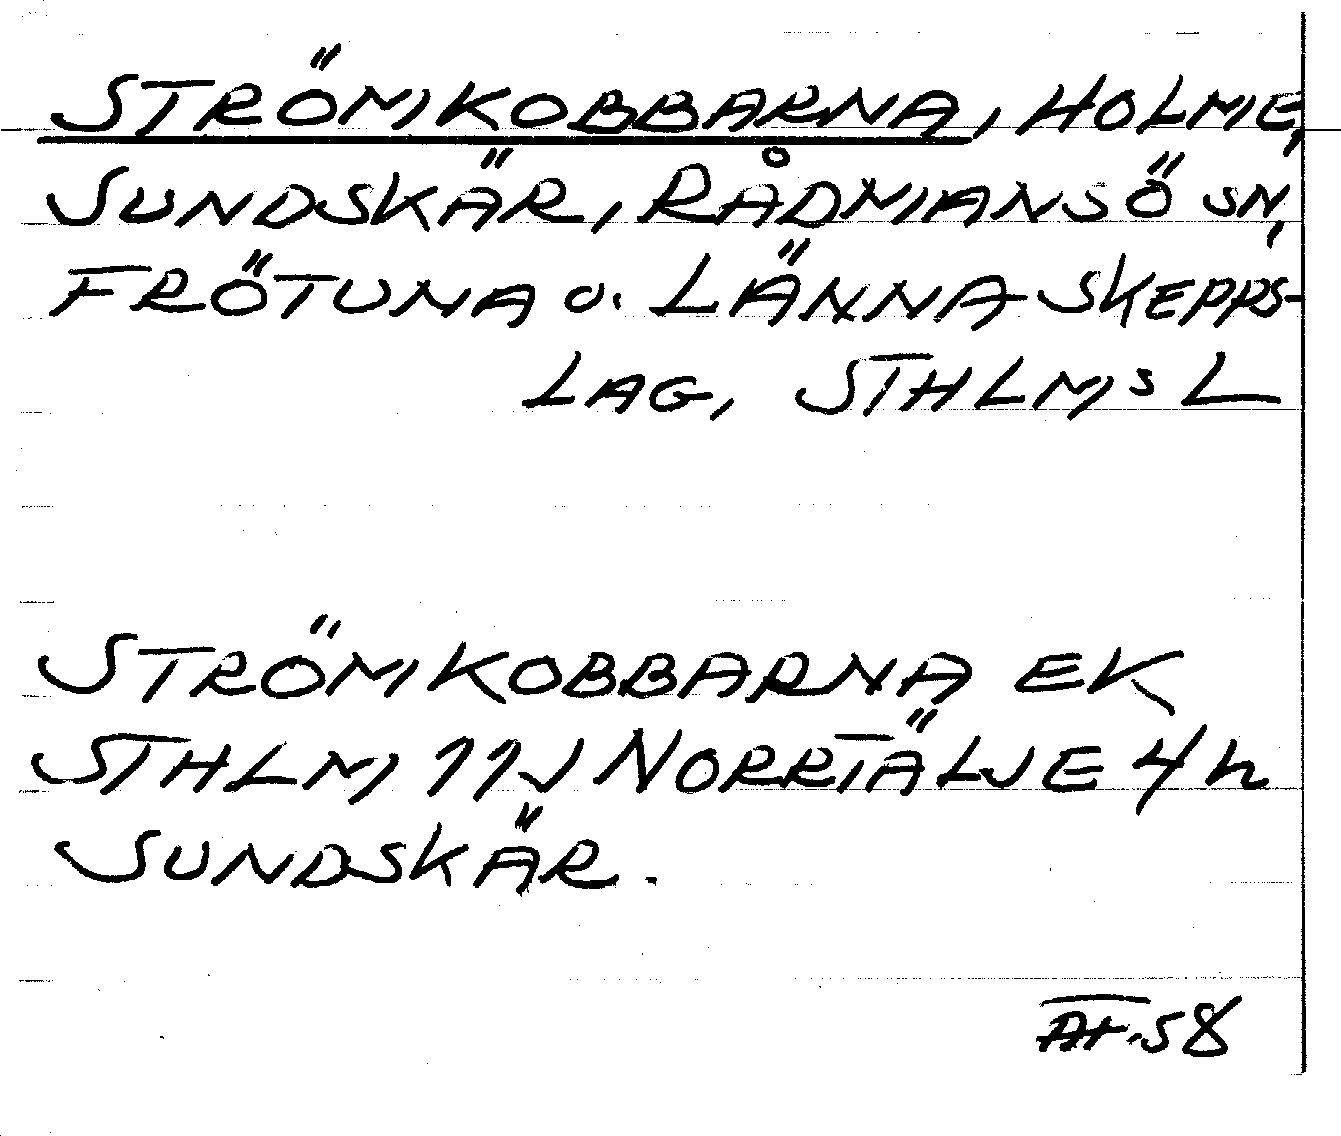 STRÖMKOBBARNA, HOLME,
SUNDSKÄR, RÅDMANSÖ SN,
FRÖTUNA O. LÄNNA SKEPPS-
LAG, STHLMS L
STRÖMKOBBARNA EK
STHLM 11J NORRTÄLJE 4h
SUNDSKÄR.
58